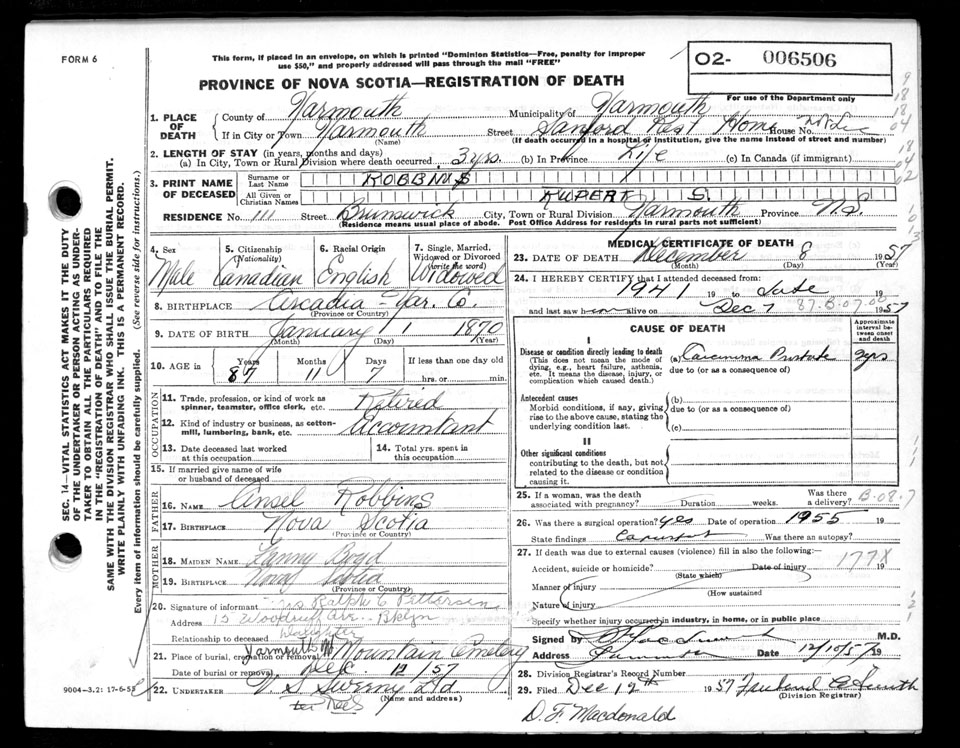 FORM 6
This form, if placed in an envelope, on which is printed "Dominion Statistics—Free, penalty for improper
use $50," and properly addressed will pass through the mail "FREE"
PROVINCE OF NOVA SCOTIA—REGISTRATION OF DEATH
O2- 006506
For use of the Department only
1. PLACE OF DEATH
County of Yarmouth Municipality of Yarmouth
If in City or Town Yarmouth Street Sanford Rest Home House No.
(Name) (If death occurred in a hospital or institution, give its name instead of street and number)
2. LENGTH OF STAY (in years, months and days)
(a) In City, Town or Rural Division where death occurred 3 yrs. (b) In Province Life (c) In Canada (if immigrant)
3. PRINT NAME OF DECEASED
Surname or Last Name ROBBINS
All Given or Christian Names RUPERT S.
RESIDENCE No. 111 Street Brunswick City, Town or Rural Division Yarmouth Province N.S.
(Residence means usual place of abode. Post Office address for residents in rural parts not sufficient)
4. Sex Male
5. Citizenship (Nationality) Canadian
6. Racial Origin English
7. Single, Married, Widowed or Divorced (write the word) Widowed
8. BIRTHPLACE Arcadia Yar. Co.
(Province or Country)
9. DATE OF BIRTH January 1 1870
(Month) (Day) (Year)
10. AGE in Years 87 Months 11 Days 7 If less than one day old
hrs. or min.
OCCUPATION
11. Trade, profession, or kind of work as spinner, teamster, office clerk, etc. Retired
12. Kind of industry or business, as cotton-mill, lumbering, bank, etc. Accountant
13. Date deceased last worked at this occupation
14. Total yrs. spent in this occupation
15. If married give name of wife or husband of deceased
FATHER
16. NAME Ansel Robbins
17. BIRTHPLACE Nova Scotia
(Province or Country)
MOTHER
18. MAIDEN NAME Fanny Boyd
19. BIRTHPLACE Nova Scotia
(Province or Country)
20. Signature of informant Ralph C Patterson
Address 15 Woodruff Ave. Bklyn
Relationship to deceased Daughter
21. Place of burial, cremation or removal Yarmouth Mountain Cemetery
Date of burial or removal Dec. 12/57
22. UNDERTAKER V. S. Sweeny Ltd
(Name and address)
MEDICAL CERTIFICATE OF DEATH
23. DATE OF DEATH December 8 1957
(Month) (Day) (Year)
24. I HEREBY CERTIFY that I attended deceased from:
1941 19 to Date 19
and last saw him alive on Dec 7 1957
87-B-07.00
CAUSE OF DEATH
Approximate interval between onset and death
I
Disease or condition directly leading to death
(This does not mean the mode of dying, e.g., heart failure, asthenia, etc. It means the disease, injury, or complication which caused death.)
(a) Carcinoma Prostate 2 yrs
due to (or as a consequence of)
Antecedent causes
Morbid conditions, if any, giving rise to the above cause, stating the underlying condition last.
(b)
due to (or as a consequence of)
(c)
II
Other significant conditions
contributing to the death, but not related to the disease or condition causing it.
25. If a woman, was the death associated with pregnancy? Duration weeks. Was there a delivery? B-08-7
26. Was there a surgical operation? yes Date of operation 1955 19
State findings Was there an autopsy?
27. If death was due to external causes (violence) fill in also the following:—
Accident, suicide or homicide? Date of injury 19
177X
(State which)
Manner of injury
(How sustained
Nature of injury
Specify whether injury occurred in industry, in home, or in public place
Signed by M.D.
Address Yarmouth Date 12/10/57 19
28. Division Registrar's Record Number
29. Filed Dec 12th 1957
(Division Registrar)
D. F. Macdonald
SEC. 14—VITAL STATISTICS ACT MAKES IT THE DUTY
OF THE UNDERTAKER OR PERSON ACTING AS UNDER-
TAKER TO OBTAIN ALL THE PARTICULARS REQUIRED
IN THE "REGISTRATION OF DEATH" AND TO FILE THE
SAME WITH THE DIVISION REGISTRAR WHO SHALL ISSUE THE BURIAL PERMIT.
WRITE PLAINLY WITH UNFADING INK. THIS IS A PERMANENT RECORD.
Every item of information should be carefully supplied. (See reverse side for instructions.)
9004-3.2: 17-6-55